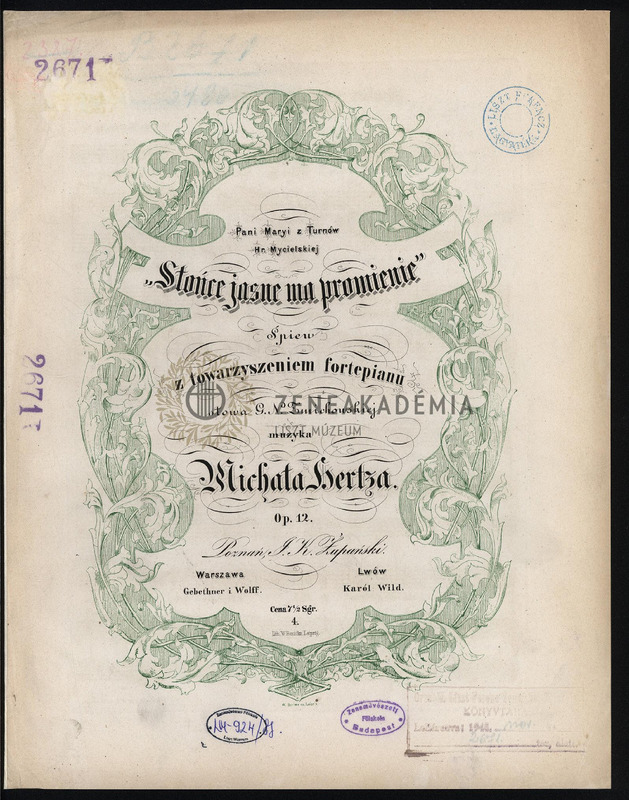 2671
LISZT FERENC
Pani Maryi z Turnów
Hr. Mycielskiej
„Słońce jasne ma promienie”
Śpiew
z towarzyszeniem fortepianu
słowa G. N.
ZENEAKADÉMIA
LISZT MÚZEUM
muzyka
Michała Hertza.
Op. 12.
Poznań, J. K. Żupański.
Warszawa
Gebethner i Wolff.
Lwów
Karól Wild.
Cena 7½ Sgr.
4.
2671
Zeneművészeti
Főiskola
Budapest